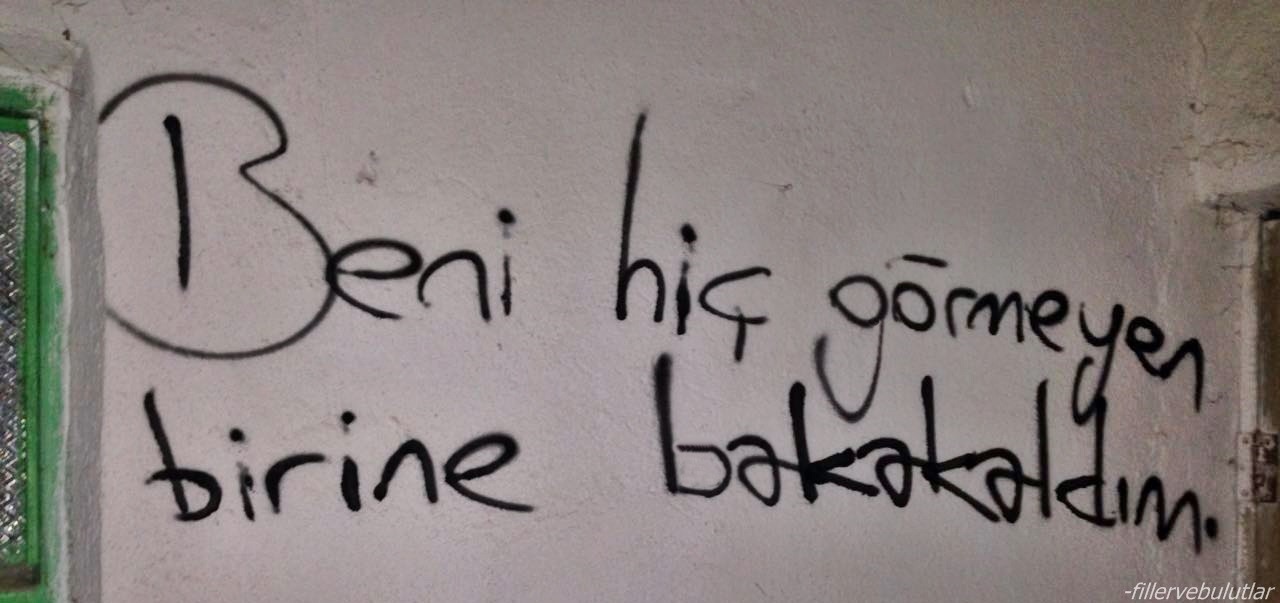 Beni hiç görmeyen
birine bakakaldım.
-fillervebulutlar